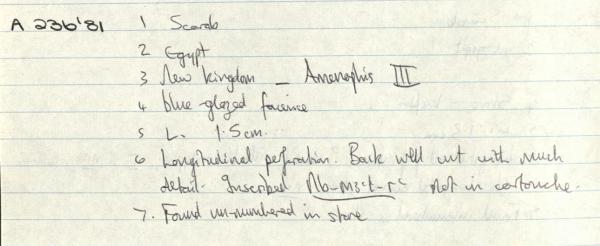 A 236'81
1 Scarab
2 Egypt
3 New Kingdom _ Amenophis III
4 blue-glazed faience
5 L. 1.5cm.
6 Longitudinal perforation. Back well cut with much
detail. Inscribed Nb-m3ˁt-rˁ not in cartouche.
7. Found un-numbered in store